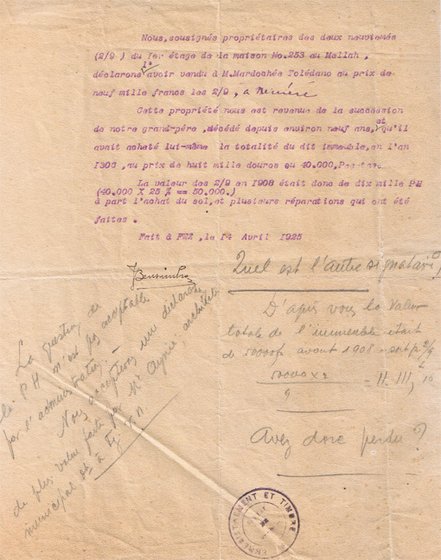 Nous, soussignés propriétaires des deux neuvièmes
(2/9 ) du 1er étage de la maison No.253 au Mellah ,
déclarons avoir vendu à M.Mardochée Tolédano au prix de
neuf mille francs les 2/9 , à
Cette propriété nous est revenue de la succession
de notre grand-père, décédé depuis environ neuf ans, et qu'il
avait acheté lui-même la totalité du dit immeuble, en l'an
1306, au prix de huit mille douros ou 40.000,
La valeur des 2/9 en 1908 était donc de dix mille PH
(40.000 X 25 % == 50.000.)
à part l'achat du sol, et plusieurs réparations qui ont été
faites .
Fait à FEZ , le 14 Avril 1925
Quel est l'autre signataire?
D'après vous la valeur
totale de l'immeuble était
de 50000f avant 1908 soit p^r 2/9
50000 x 2
9
= 11.111,10
Avez donc perdu ?
La question de
la PH n'est pas acceptable
par l'administration.
Nous acceptons une déclaration
de plus value faite par Mr architecte
municipal à Fez
ENREGISTREMENT ET TIMBRE